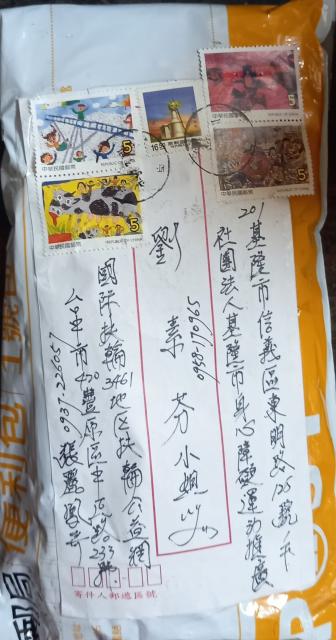 中華民國郵票
5
REPUBLIC OF CHINA
中華民國郵票
5
中華民國郵票
5
中華民國郵票
5
201基隆市信義區東明路125號
社團法人基隆市身心障礙運動推廣
劉素芬小姐
0958-170965
國際扶輪3461地區扶輪公益網
台中市420豐原區
0937-226057
寄件人郵遞區號
便利包
1號
郵局
POST